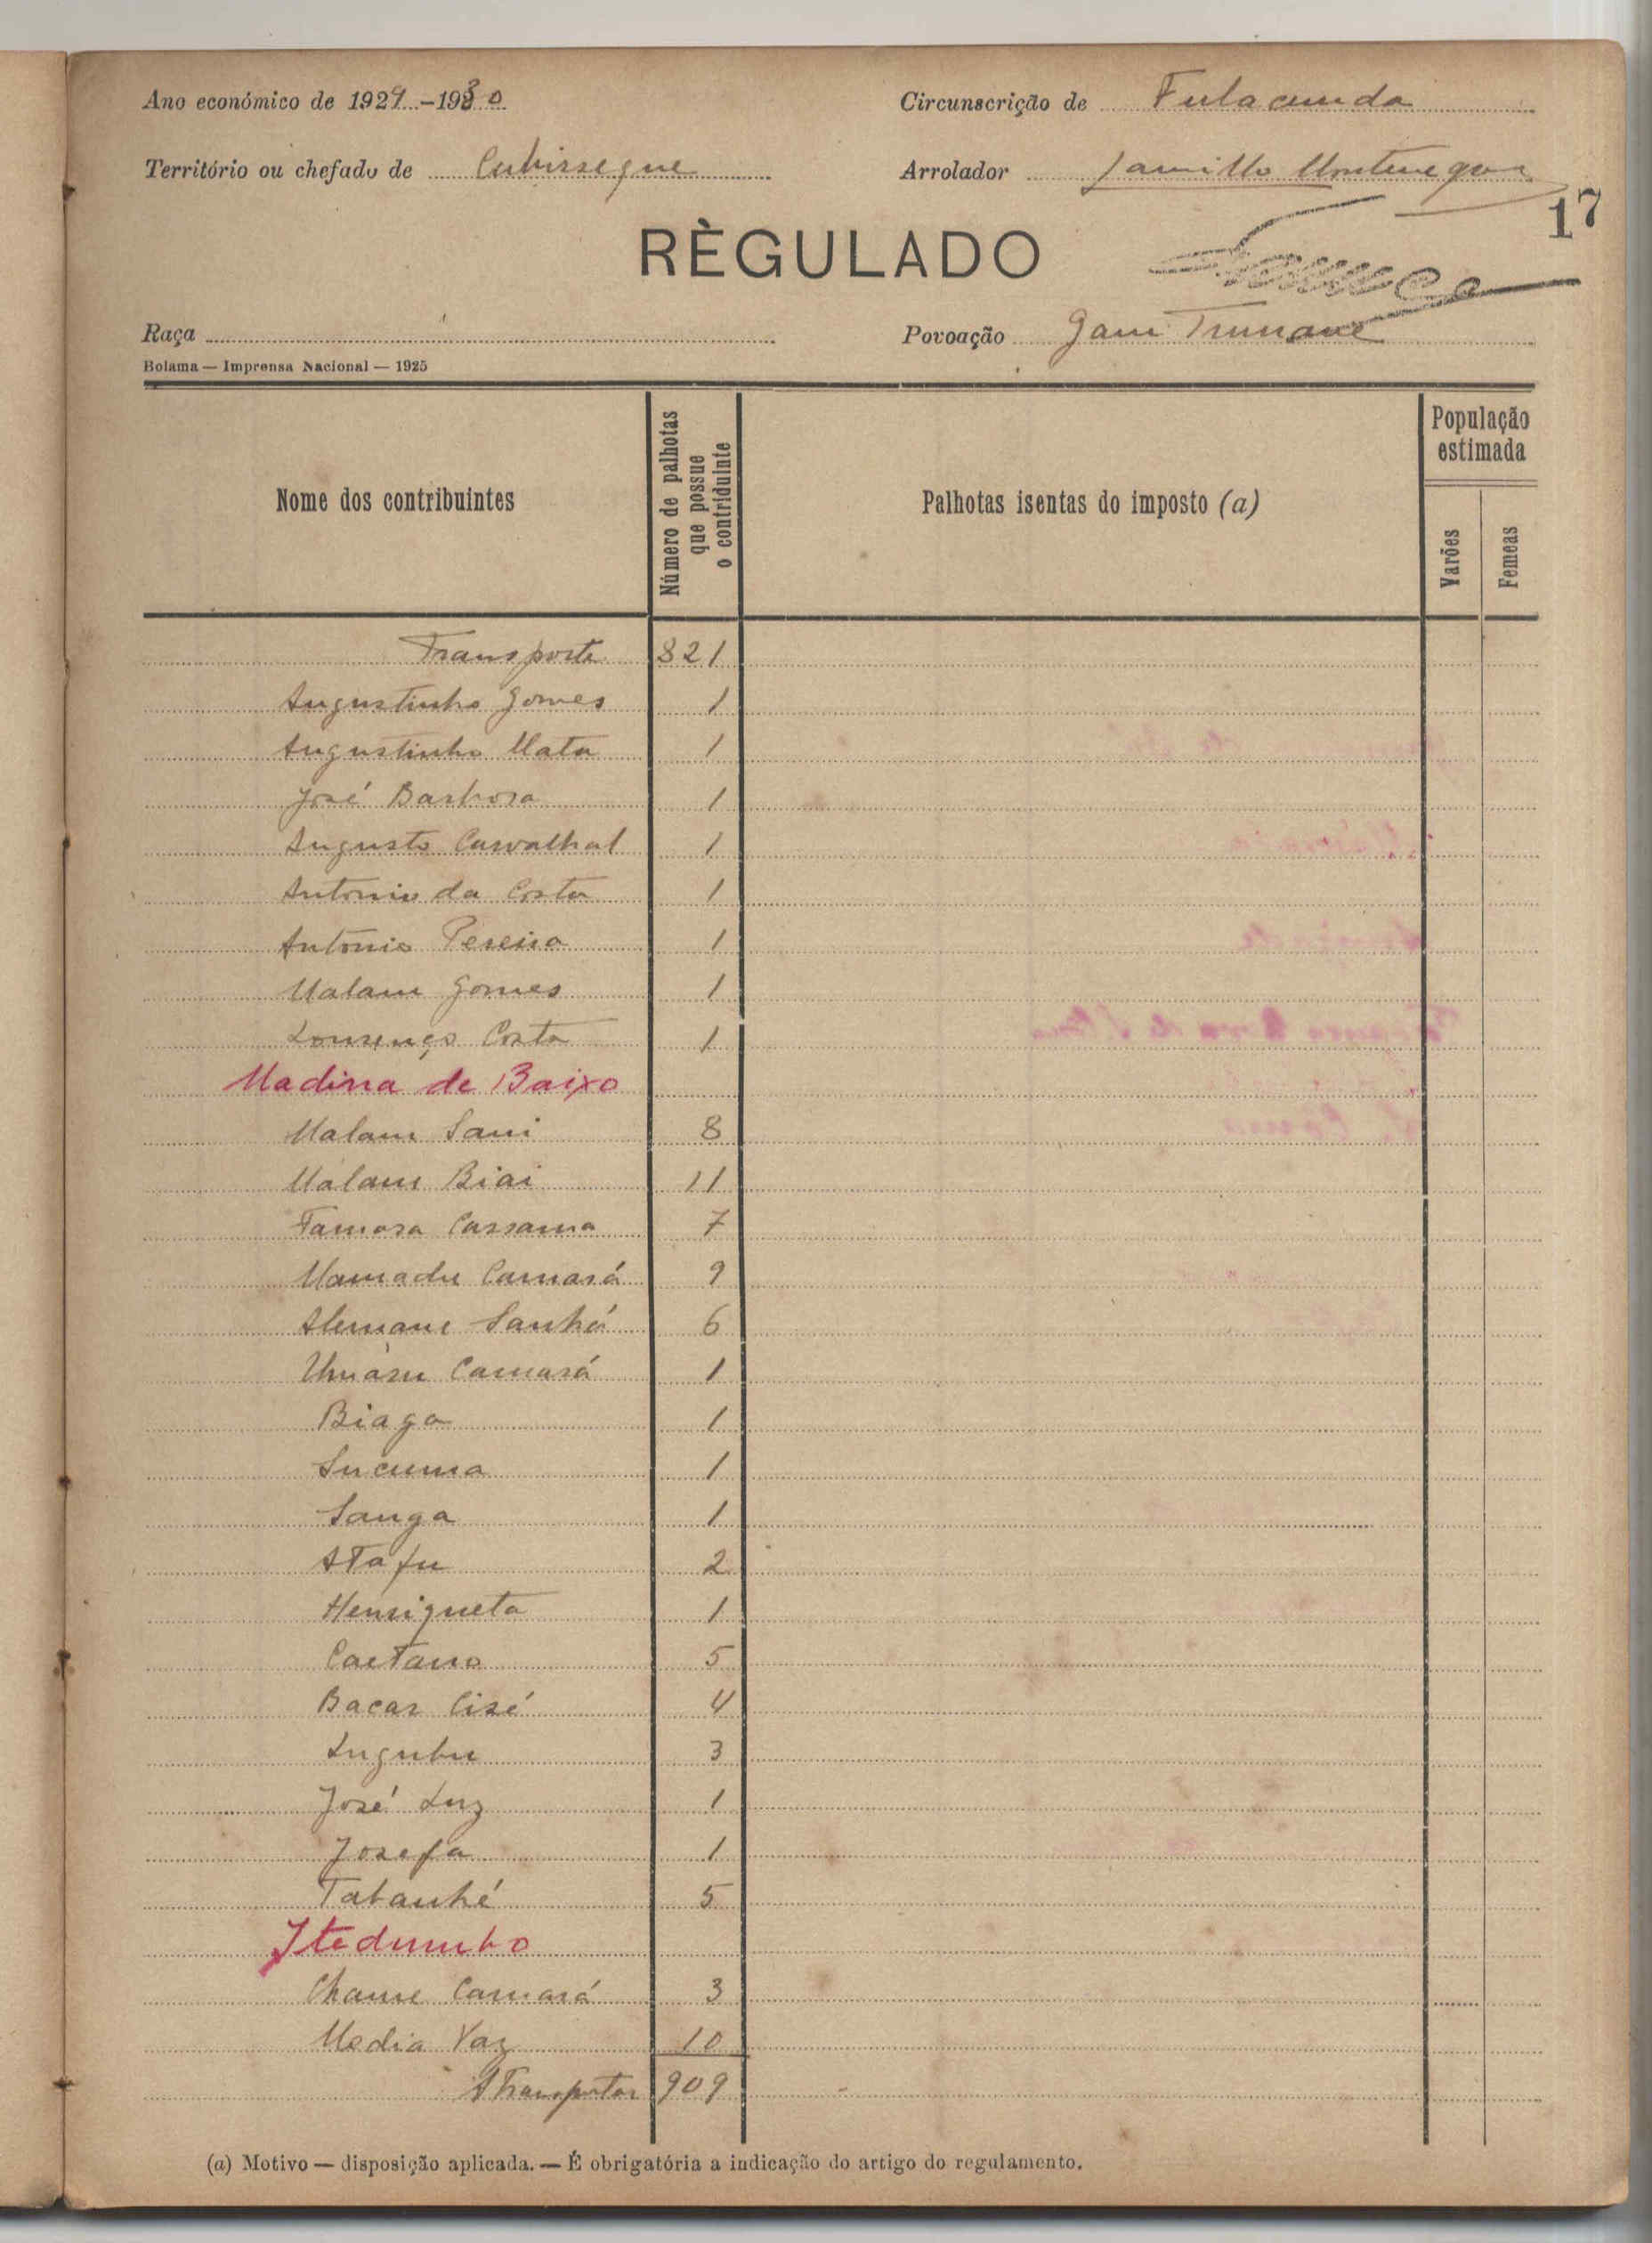 Ano económico de 1929-1930
Circunscrição de Fulacunda
Território ou chefado de Cubissegue
Arrolador Camillo Montenegro
17
RÈGULADO
Raça
Povoação Gam Trunane
Bolama — Imprensa Nacional — 1925
Nome dos contribuintes
Número de palhotas que possue o contriduinte
Palhotas isentas do imposto (a)
População estimada
Varões
Femeas
Transporte 821
Augustinho Gomes 1
Augustinho Mata 1
José Barbosa 1
Augusto Carvalhal 1
Antonio da Costa 1
Antonio Pereira 1
Malam Gomes 1
Lourenço Costa 1
Madina de Baixo
Malam Sani 8
Malam Biai 11
Famara Cassama 7
Mamadu Camará 9
Alemane Sanhá 6
Umaru Camará 1
Biaga 1
Sucuma 1
Sanga 1
Stafu 2
Henriqueta 1
Caetano 5
Bacar Cisé 4
Lugubu 3
José Luz 1
Josefa 1
Tabanhé 5
Itedumbo
Chame Camará 3
Media Vaz 10
A Transportar 909
(a) Motivo — disposição aplicada. — É obrigatória a indicação do artigo do regulamento.